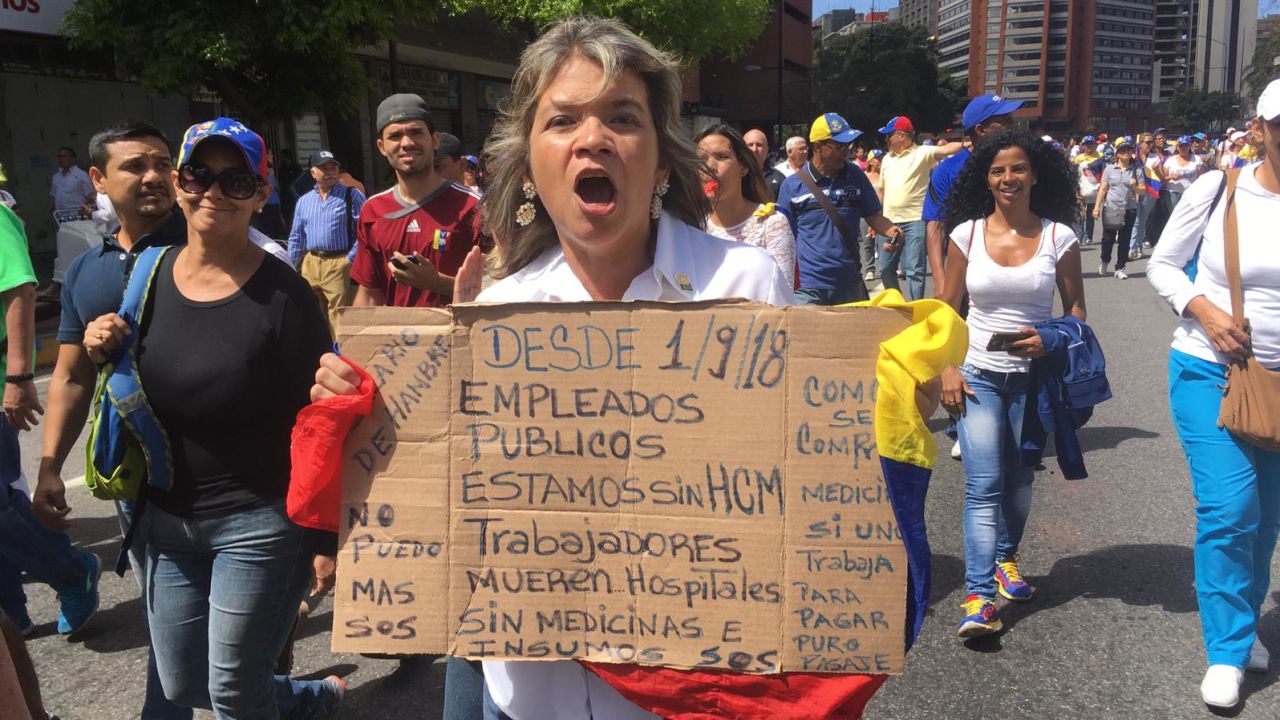 DE HANBRE
NO
PUEDO
MAS
SOS
DESDE 1/9/18
EMPLEADOS
PUBLICOS
ESTAMOS SIN HCM
TrabajadORES
MUEREN HospitALES
SIN MEDICINAS E
INSUMOS SOS
COMO
SE
SI UNO
Trabaja
PARA
PAGAR
PURO
PASAJE